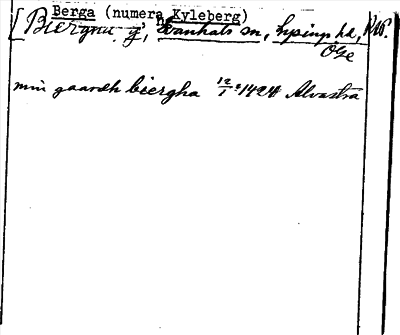 Berga (numera Kyleberg)
[Biergha g, Svanhals sn, Lysings hd,
Ög
min gaardh biergha 12/1 1424 Alvastra